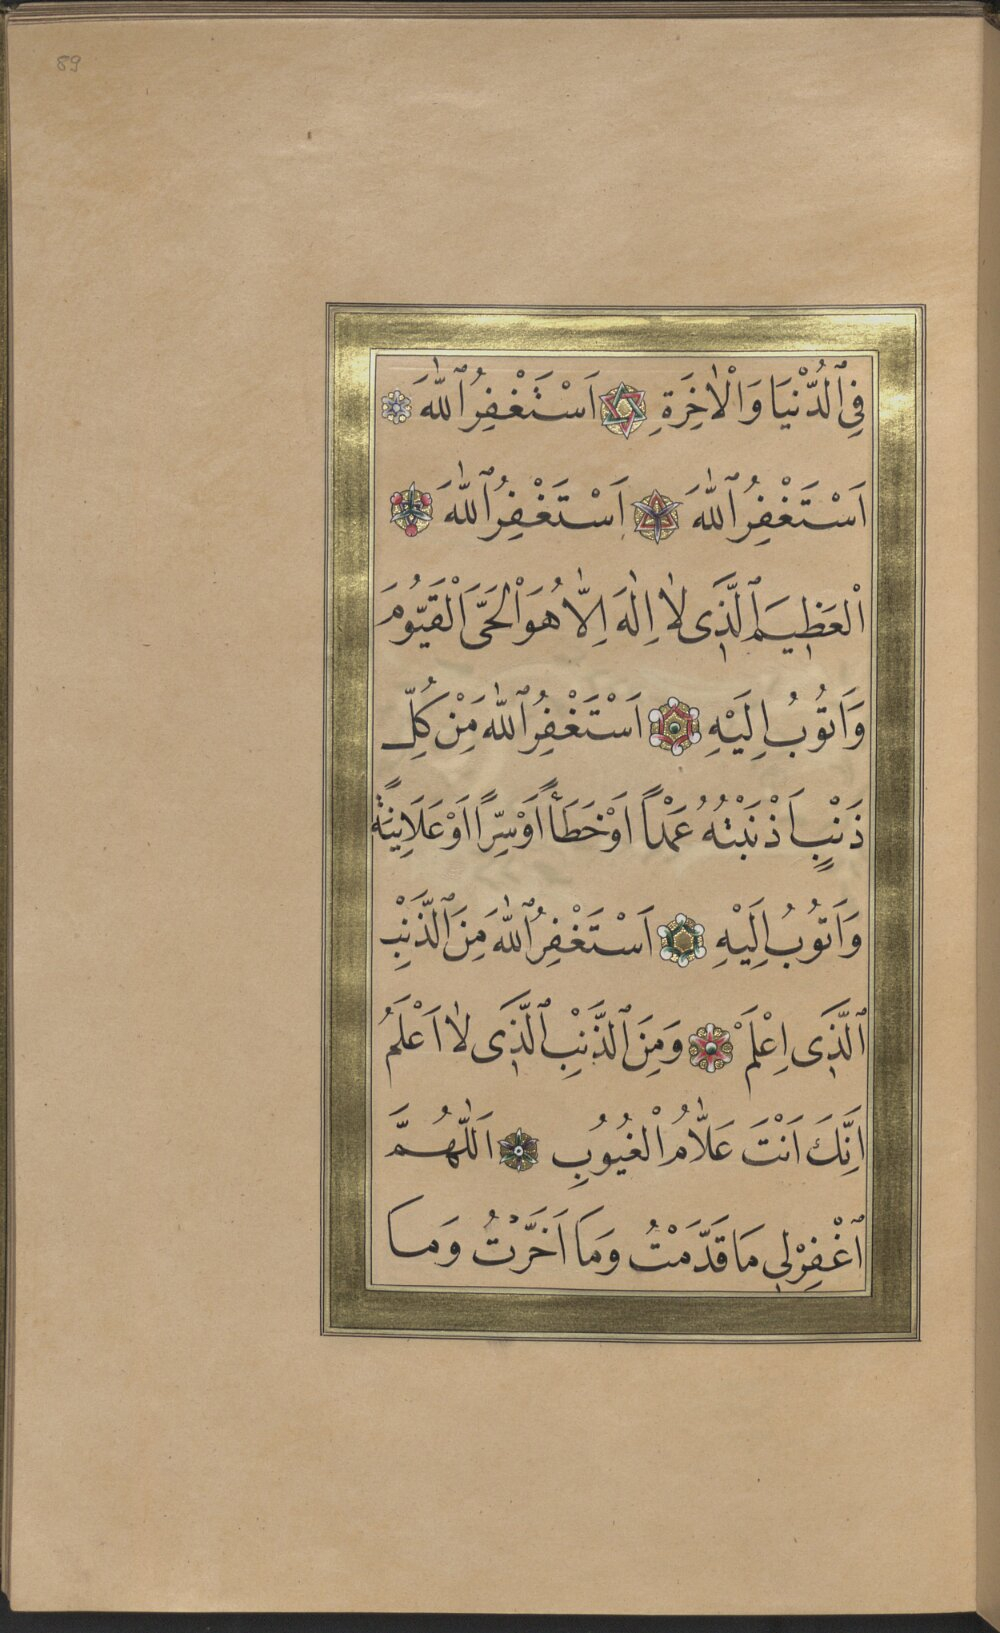 89
فِى ٱلدُّنْيَا وَالْاٰخِرَةِ اَسْتَغْفِرُ ٱللّٰهَ
اَسْتَغْفِرُ ٱللّٰهَ اَسْتَغْفِرُ ٱللّٰهَ
الْعَظِيمَ ٱلَّذِى لَا اِلٰهَ اِلَّا هُوَ الْحَىَّ الْقَيُّومَ
وَاَتُوبُ اِلَيْهِ اَسْتَغْفِرُ ٱللّٰهَ مِنْ كُلِّ
ذَنْبٍ اَذْنَبْتُهُ عَمْداً اَوْ خَطَأً اَوْ سِرًّا اَوْ عَلَانِيَةً
وَاَتُوبُ اِلَيْهِ اَسْتَغْفِرُ ٱللّٰهَ مِنَ ٱلذَّنْبِ
ٱلَّذِى اِعْلَمْ وَمِنَ ٱلذَّنْبِ ٱلَّذِى لَا اَعْلَمُ
اِنَّكَ اَنْتَ عَلَّامُ الْغُيُوبِ اَللّٰهُمَّ
ٱغْفِرْ لِى مَا قَدَّمْتُ وَمَا اَخَّرْتُ وَمَا